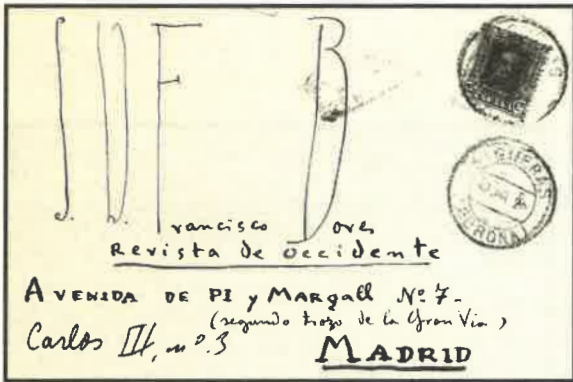 S. D. Francisco Bores
Revista de Occidente
AVENIDA DE PI y MARgall Nº 7-
(segundo trozo de la Gran Via)
Carlos III, nº. 3
MADRID
FIGUERAS
(GERONA)